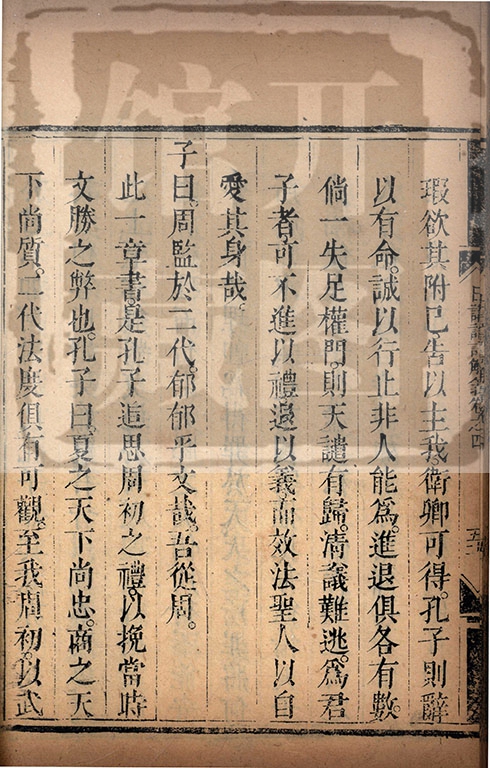 瑕欲其附己告以主我衛卿可得。孔子則辭
以有命。誠以行止非人能為。進退俱各有數。
倘一失足權門。則天譴有歸。清議難逃。為君
子者可不進以禮退以義而效法聖人以自
愛其身哉。
子曰。周監於二代。郁郁乎文哉。吾從周。
此一章書。是孔子追思周初之禮。以挽當時
文勝之弊也。孔子曰。夏之天下尚忠。商之天
下尚質。二代法度俱有可觀。至我周初。以武